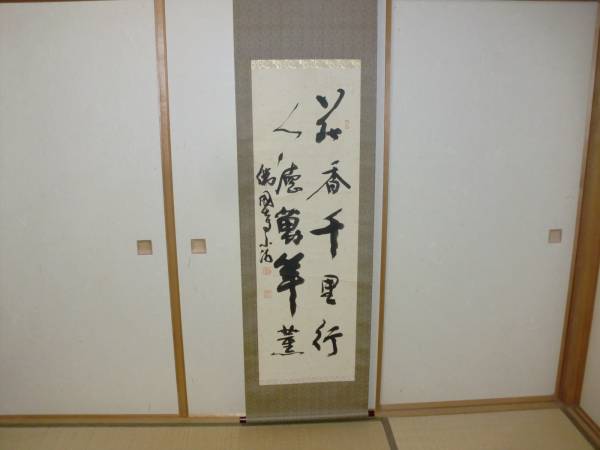 花香千里行
人徳萬年薫